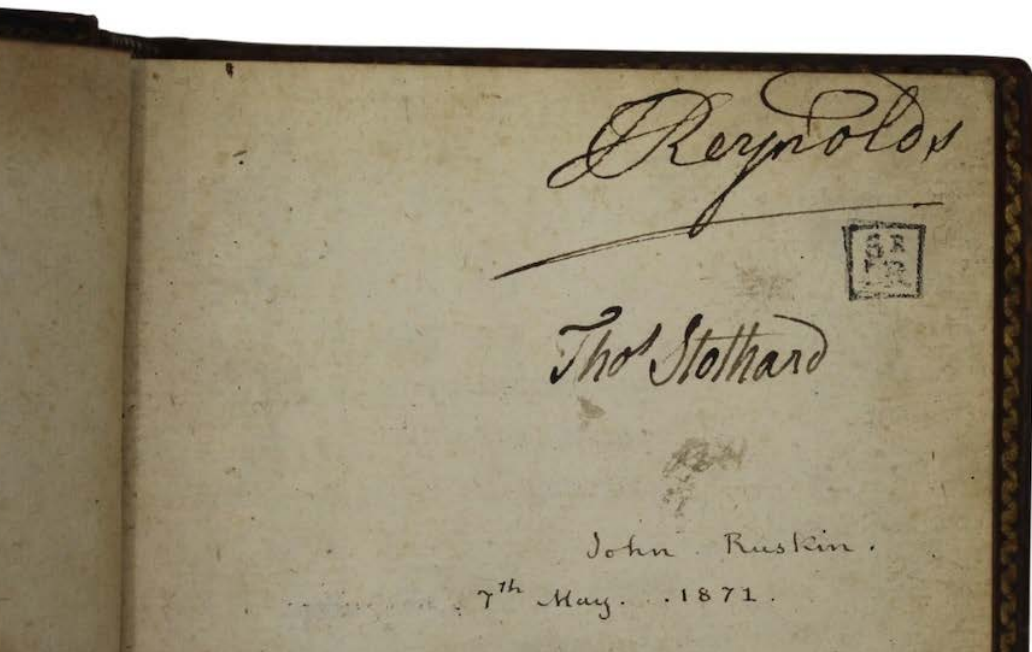 JReynolds
Thos Stothard
John Ruskin.
7th May. 1871.